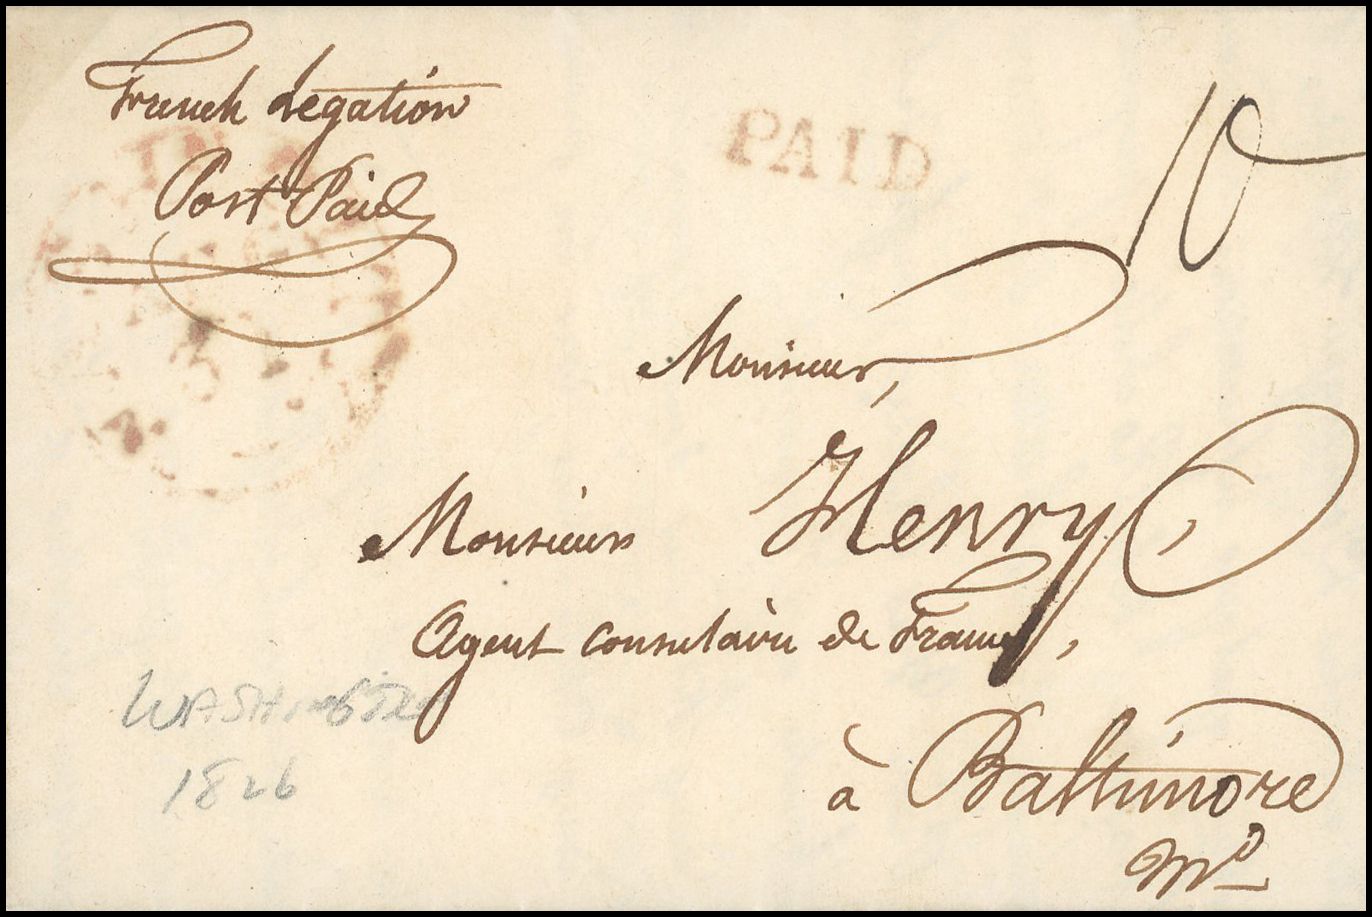 French Legation
Post Paid
PAID
10
Monsieur,
Monsieur Henry,
Agent consulaire de France,
à Baltimore
Md
WASHINGTON
1826